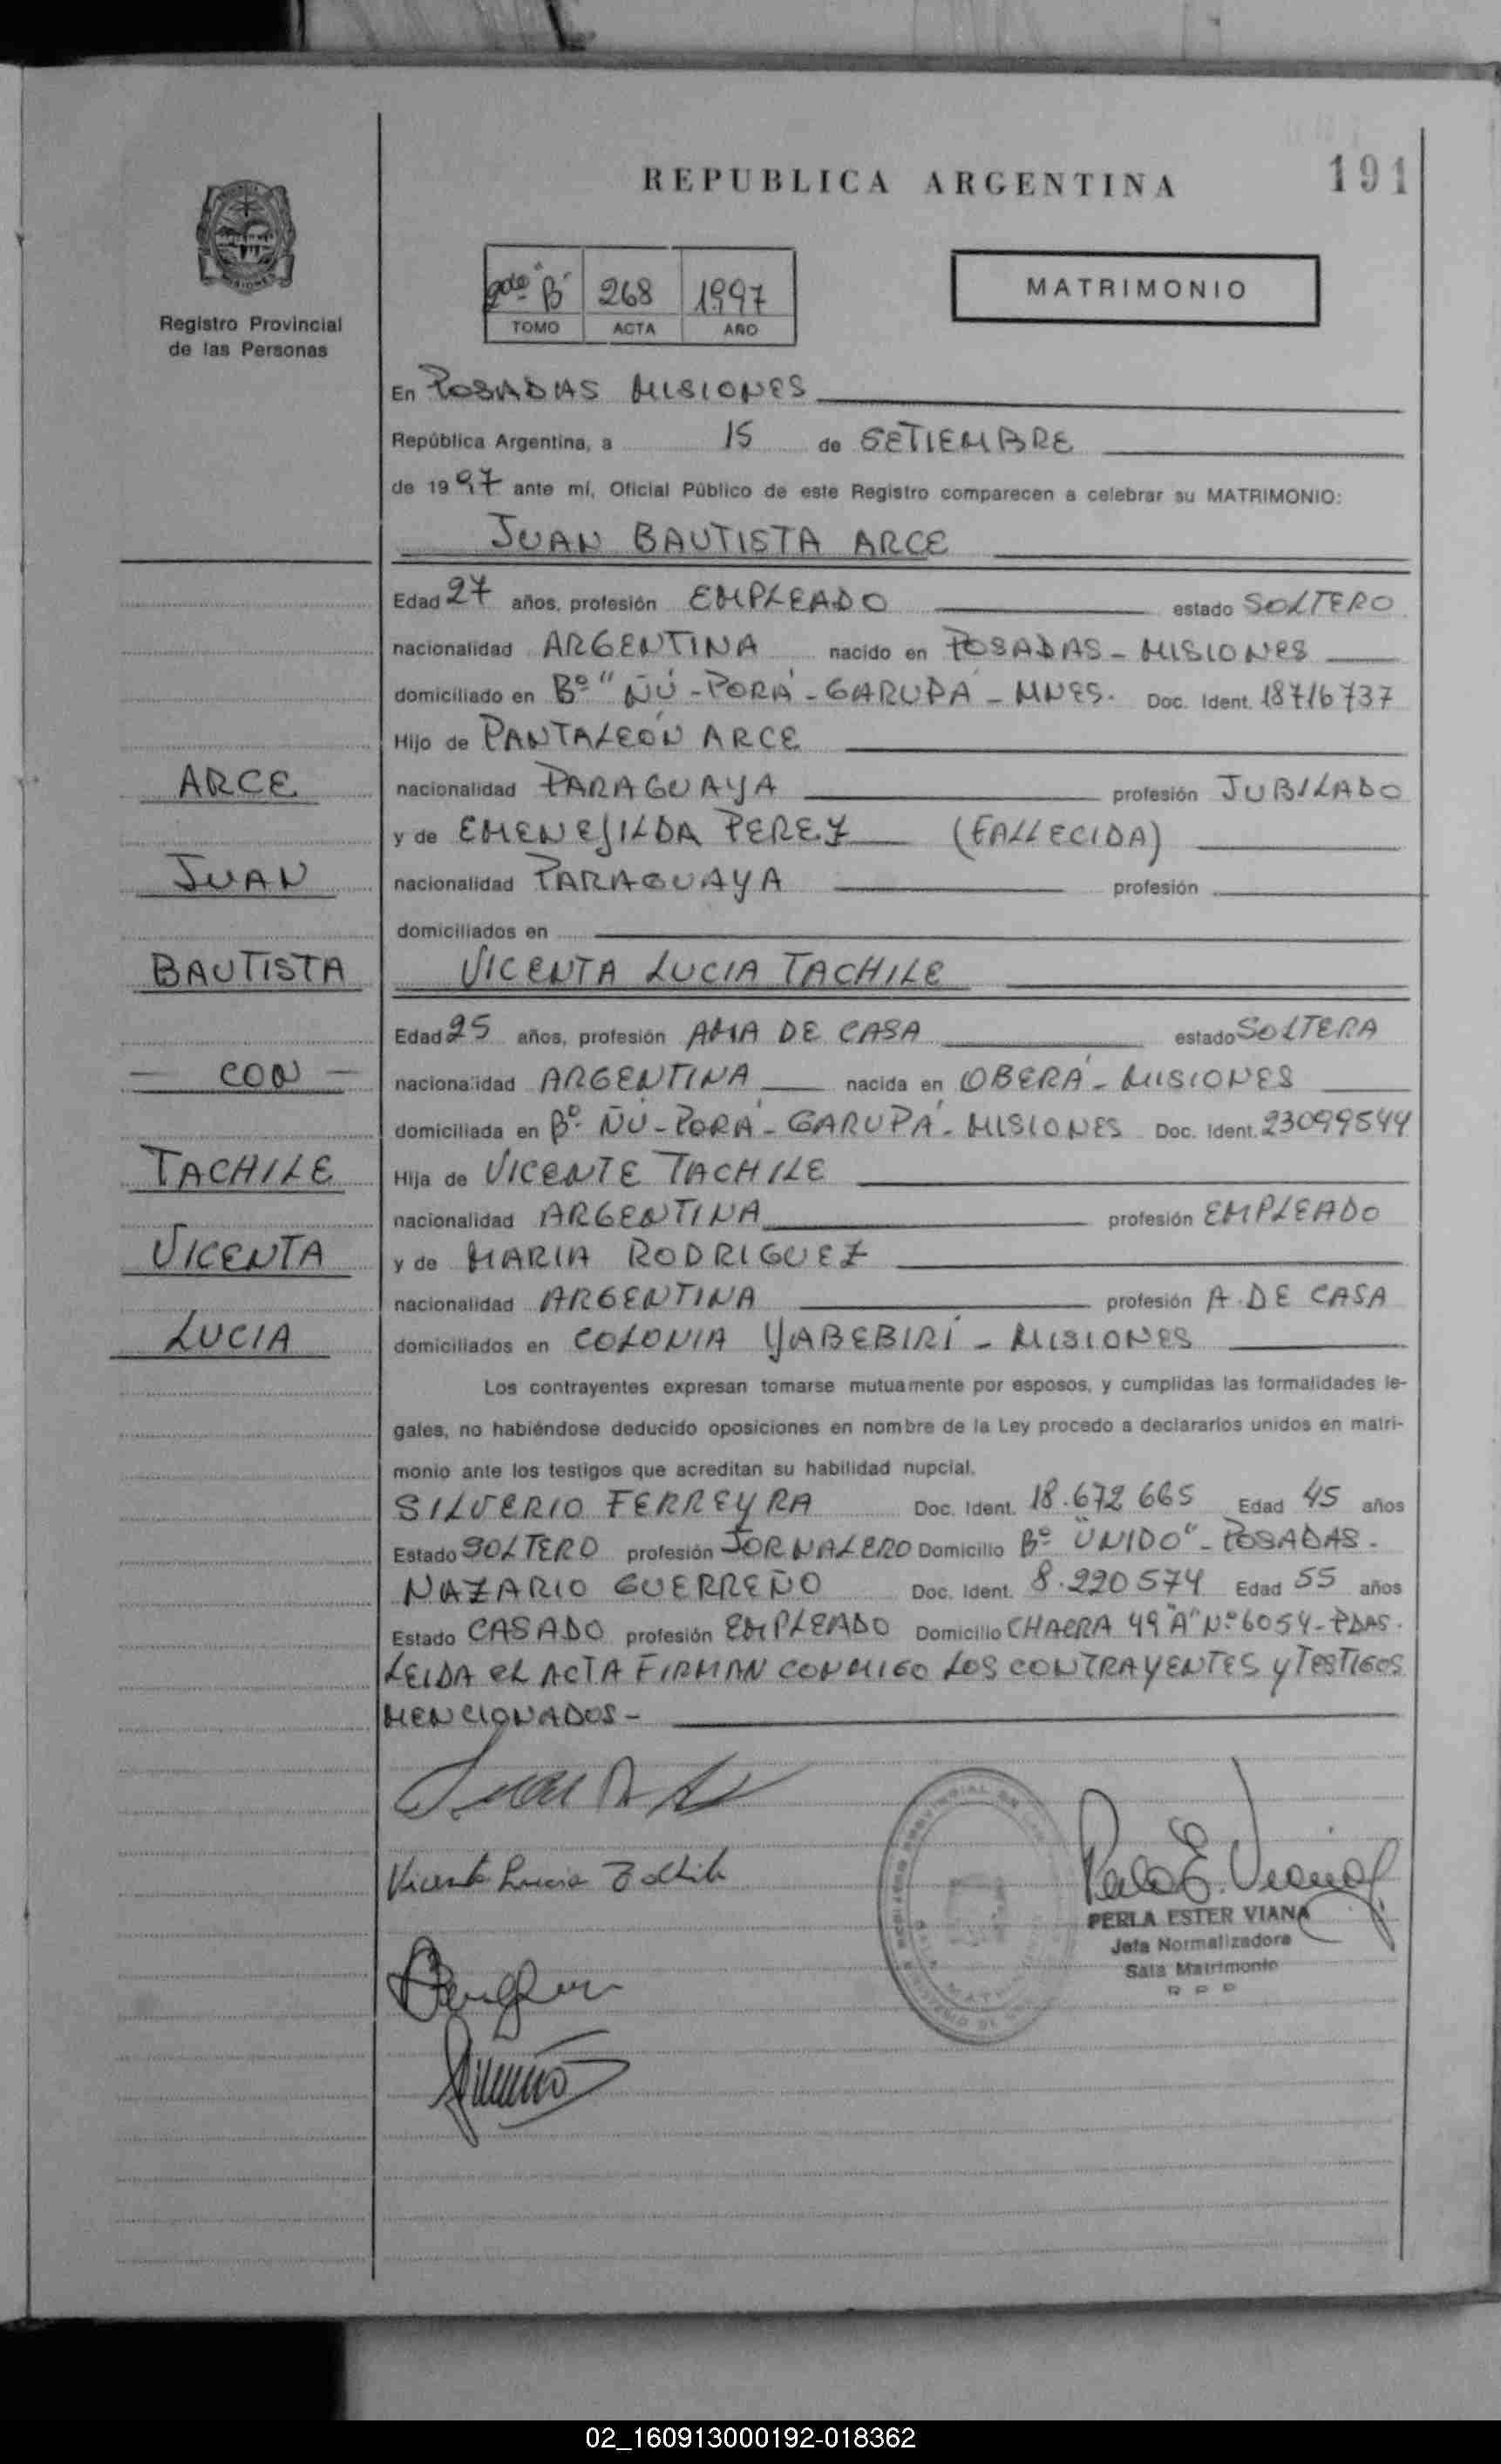 REPUBLICA ARGENTINA
191
Registro Provincial
de las Personas
2do "B" 268 1997
TOMO ACTA AÑO
MATRIMONIO
En POSADAS MISIONES
República Argentina, a 15 de SETIEMBRE
de 1997 ante mí, Oficial Público de este Registro comparecen a celebrar su MATRIMONIO:
JUAN BAUTISTA ARCE
Edad 27 años, profesión EMPLEADO estado SOLTERO
nacionalidad ARGENTINA nacido en POSADAS - MISIONES
domiciliado en Bº "ÑÚ - PORÁ - GARUPÁ - MNES. Doc. Ident. 18716737
Hijo de PANTALEÓN ARCE
ARCE
nacionalidad PARAGUAYA profesión JUBILADO
y de EMENEJILDA PEREZ (FALLECIDA)
JUAN
nacionalidad PARAGUAYA profesión
domiciliados en
BAUTISTA
VICENTA LUCIA TACHILE
Edad 25 años, profesión AMA DE CASA estado SOLTERA
- CON -
nacionalidad ARGENTINA nacida en OBERÁ - MISIONES
domiciliada en Bº ÑÚ - PORÁ - GARUPÁ - MISIONES Doc. Ident. 23099544
TACHILE
Hija de VICENTE TACHILE
nacionalidad ARGENTINA profesión EMPLEADO
VICENTA
y de MARIA RODRIGUEZ
nacionalidad ARGENTINA profesión A. DE CASA
LUCIA
domiciliados en COLONIA YABEBIRÍ - MISIONES
Los contrayentes expresan tomarse mutuamente por esposos, y cumplidas las formalidades le-
gales, no habiéndose deducido oposiciones en nombre de la Ley procedo a declararlos unidos en matri-
monio ante los testigos que acreditan su habilidad nupcial.
SILVERIO FERREYRA Doc. Ident. 18.672665 Edad 45 años
Estado SOLTERO profesión JORNALERO Domicilio Bº "UNIDO" - POSADAS.
NAZARIO GUERREÑO Doc. Ident. 8.220574 Edad 55 años
Estado CASADO profesión EMPLEADO Domicilio CHACRA 49 "A" Nº 6054 - PDAS.
LEIDA EL ACTA FIRMAN CONMIGO LOS CONTRAYENTES Y TESTIGOS
MENCIONADOS -
Vicenta Lucia Tachile
Perla E. Viana
PERLA ESTER VIANA
Jefa Normalizadora
Sala Matrimonio
02_160913000192-018362